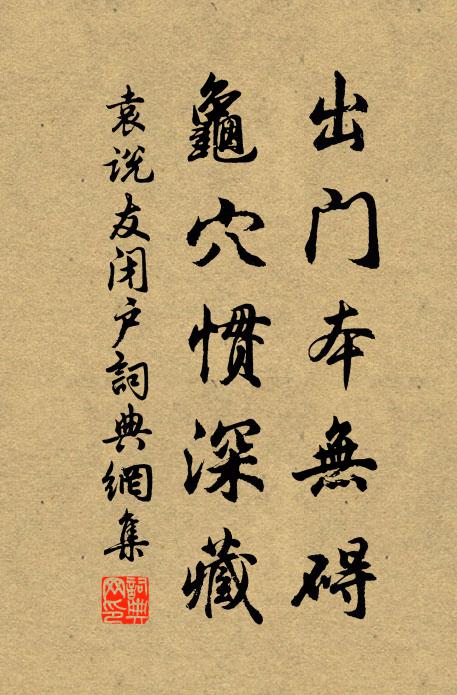 出门本無碍
龜穴惯深藏
袁说友闭户詞典網集
詞典網印